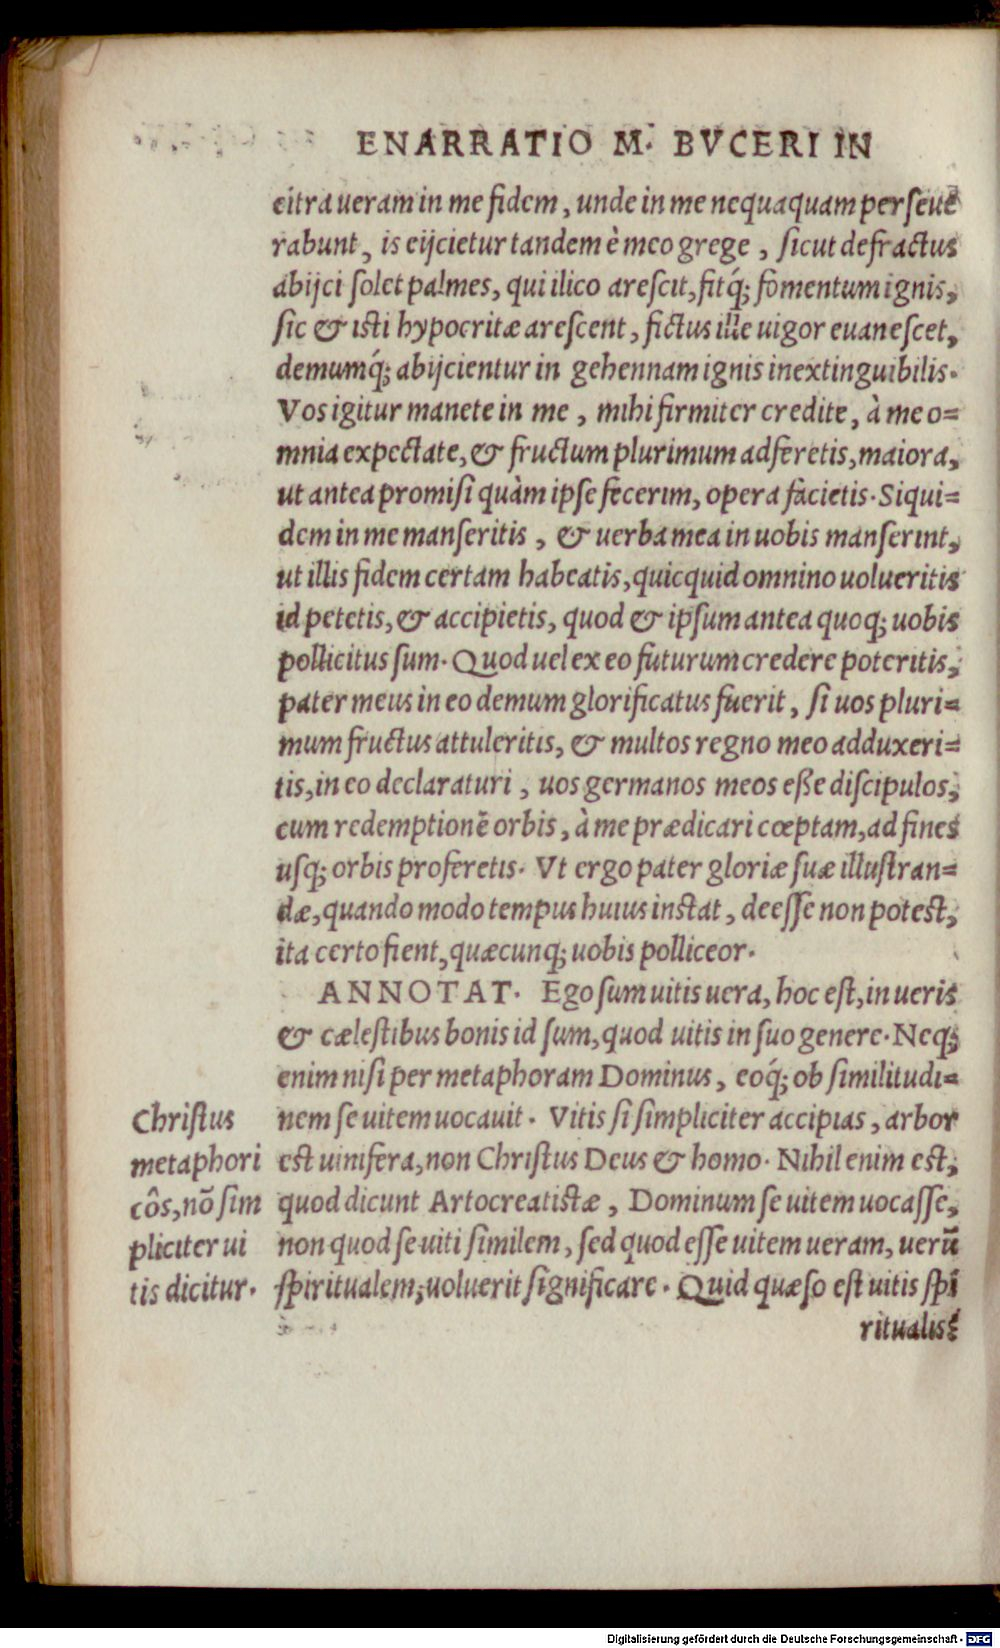 ENARRATIO M. BVCERI IN
citra ueram in me fidem, unde in me nequaquam perseue
rabunt, is eijcietur tandem è meo grege, sicut defractus
abijci solet palmes, qui ilico arescit, fitq́; fomentum ignis,
sic & isti hypocritæ arescent, fictus ille uigor euanescet,
demumq́; abijcientur in gehennam ignis inextinguibilis.
Vos igitur manete in me, mihi firmiter credite, à me o=
mnia expectate, & fructum plurimum adferetis, maiora,
ut antea promisi quàm ipse fecerim, opera facietis. Siqui=
dem in me manseritis, & uerba mea in uobis manserint,
ut illis fidem certam habeatis, quicquid omnino uolueritis
id petetis, & accipietis, quod & ipsum antea quoq; uobis
pollicitus sum. Quod uel ex eo futurum credere poteritis,
pater meus in eo demum glorificatus fuerit, si uos pluri=
mum fructus attuleritis, & multos regno meo adduxeri=
tis, in eo declaraturi, uos germanos meos eße discipulos,
cum redemptionẽ orbis, à me prædicari cœptam, ad fines
usq; orbis proferetis. Vt ergo pater gloriæ suæ illustran=
dæ, quando modo tempus huius instat, deesse non potest,
ita certo fient, quæcunq; uobis polliceor.
ANNOTAT. Ego sum uitis uera, hoc est, in ueris
& cælestibus bonis id sum, quod uitis in suo genere. Neq;
enim nisi per metaphoram Dominus, eoq́; ob similitudi=
nem se uitem uocauit. Vitis si simpliciter accipias, arbor
est uinifera, non Christus Deus & homo. Nihil enim est,
quod dicunt Artocreatistæ, Dominum se uitem uocasse,
non quod se uiti similem, sed quod esse uitem ueram, uerũ
spiritualem; uoluerit significare. Quid quæso est uitis spi
ritualis?
Christus
metaphori
côs, nõ sim
pliciter ui
tis dicitur.
Digitalisierung gefördert durch die Deutsche Forschungsgemeinschaft - DFG